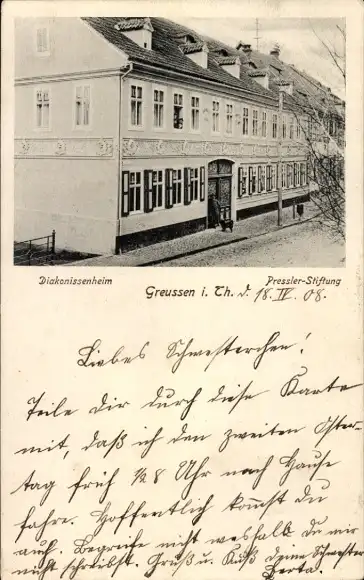 Diakonissenheim
Pressler-Stiftung
Greussen i. Th. d. 18. IV. 08.
Liebes Schwesterchen!
Teile Dir durch diese Karte
mit, daß ich den zweiten Oster-
tag früh ½8 Uhr nach Hause
fahre. Hoffentlich kommst du
auch. Begreife nicht weshalb du mir
nicht schreibst. Gruß u. Kuß deine Schwester
Herta.